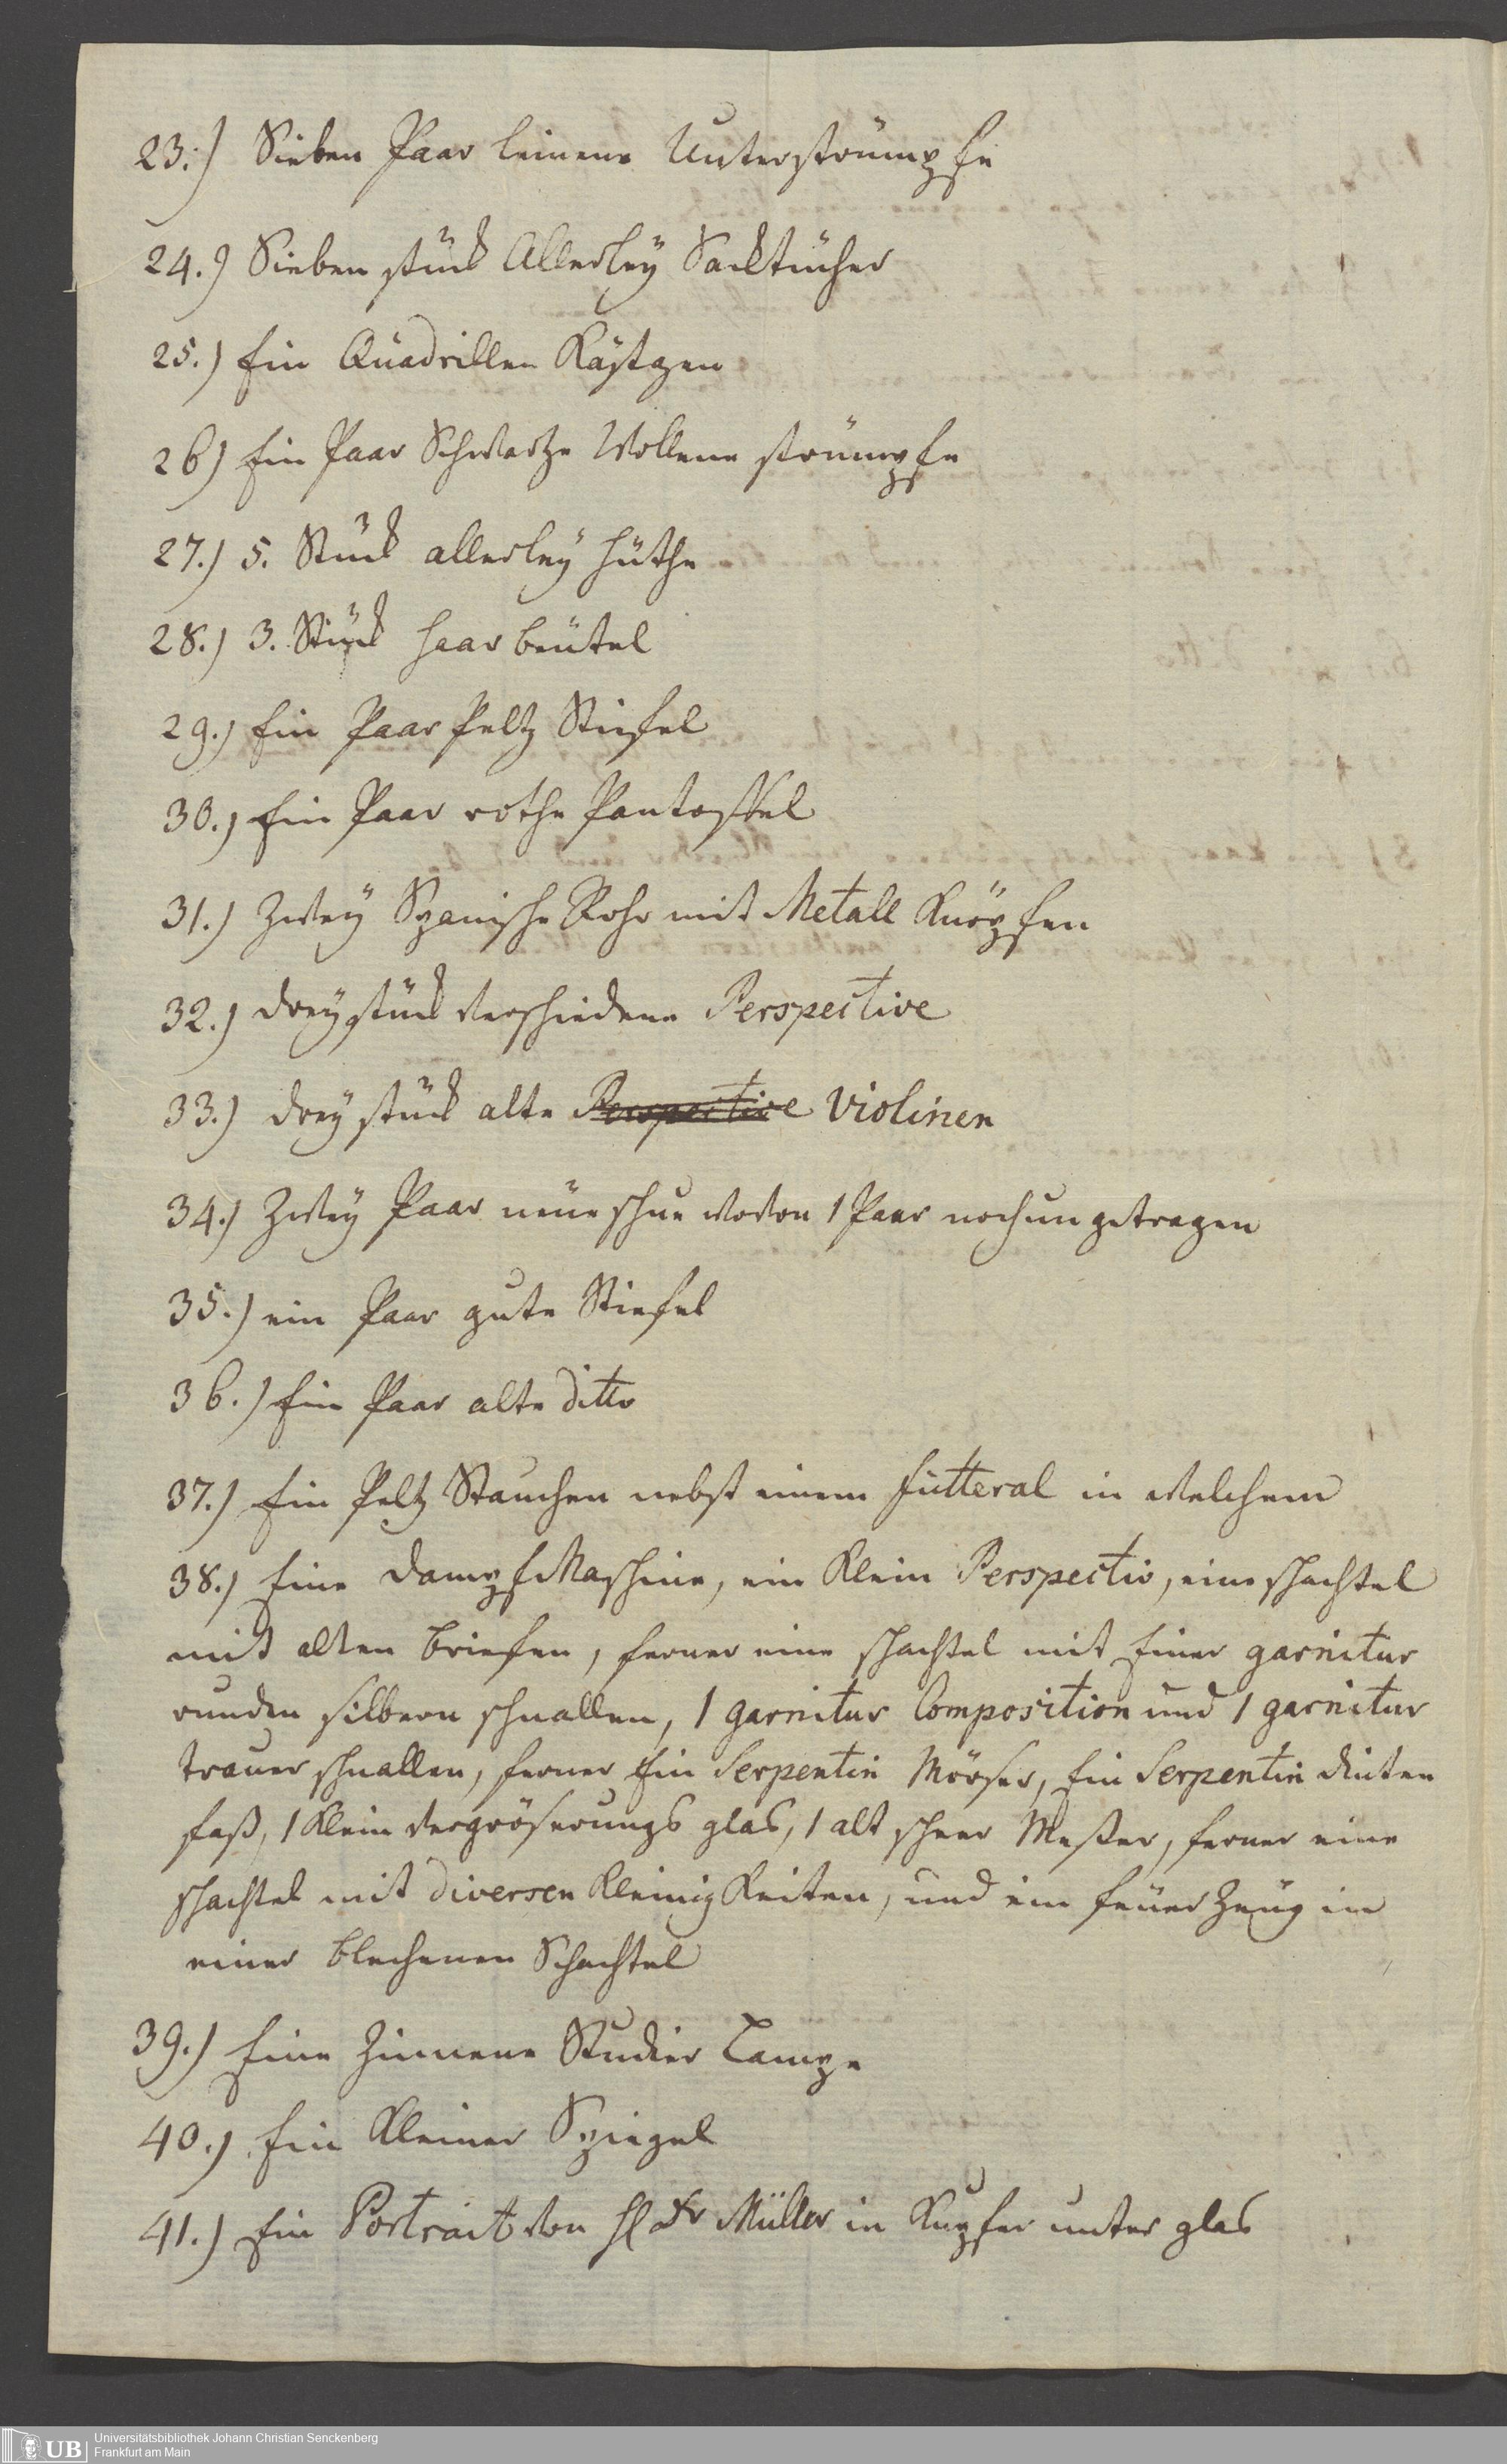 23.) Sieben Paar leinene Unterstrümpfe
24.) Sieben stück Allerleÿ Sacktücher
25.) Ein Quadrillen Kästgen
26) Ein Paar Schwartze Wollene strümpfe
27.) 5. Stück allerleÿ Hüthe
28.) 3. Stück Haar beütel
29.) Ein Paar Peltz Stiefel
30.) Ein Paar rothe Pantoffel
31.) Zweÿ Spanische Rohr mit Metall Knöpfen
32.) dreÿ stück verschiedene Perspective
33.) dreÿ stück alte Perspective Violinen
34.) Zweÿ Paar neue schue wovon 1 Paar noch ungetragen
35.) ein Paar gute Stiefel
36.) Ein Paar alte ditto
37.) Ein Peltz Stauchen nebst einem Futteral in welchem
38.) Eine Dampf Maschine, ein Klein Perspectiv, eine schachtel
mit alten Briefen, ferner eine schachtel mit Einer garnitur
runden silbern schnallen, 1 garnitur Composition und 1 garnitur
trauer schnallen, ferner Ein Serpentin Mörser, Ein Serpentin dinten
faß, 1 Klein vergröserungs glas, 1 alt scheer Meßer, ferner eine
schachtel mit diversen Kleinig Keiten, und ein feuer Zeug in
einer blechenen Schachtel
39.) Eine Zinnene Studier Lampe
40.) Ein Kleiner Spiegel
41.) Ein Portrait von H Dr Müller in Kupfer unter glas
UB
Universitätsbibliothek Johann Christian Senckenberg
Frankfurt am Main